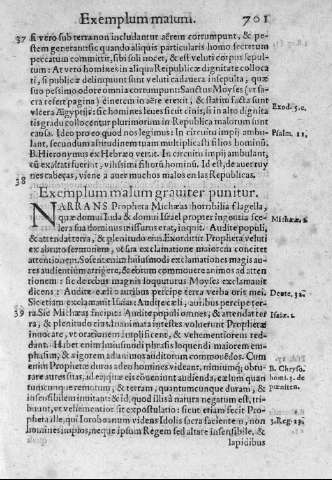 Exemplum malum. 701
37 si vero sub terra non includantur aërem corrumpunt, & pe-
stem generant: sic quando aliquis particularis homo secretum
peccatum committit, sibi soli nocet, & est veluti corpus sepul-
tum: At vero homines in aliqua Reipublicæ dignitate colloca
ti, si palam delinquunt sunt veluti cadavera insepulta, quæ
suo pessimo odore omnia corrumpunt: Sanctus Moyses (ut sa-
cra refert pagina) cinerem in aëre erexit, & statim facta sunt
vlcera Ægypti: sic homines leves sicut cinis, si in alto dignita
tis gradu collocentur plurimorum in Republica malorum sunt
causa. Ideo pro eo quod nos legimus: In circuitu impij ambu-
lant, secundum altitudinem tuam multiplicasti filios hominũ.
B. Hieronymus ex Hebræo vertit. In circuitu impij ambulant,
cũ exaltati fuerint, vilissimi filiorũ hominũ. Id est, de auer ruy
nes cabeças, viene a auer muchos males en las Republicas.
Exod. 5.c.
Psalm. 11.
38
Exemplum malum graviter punitur.
NARRANS Propheta Michæas horribilia flagella,
quæ domui Iuda & domui Israel propter ingentia sce-
lera sua dominus inflicturus erat, inquit. Audite populi
& attendat terra, & plenitudo eius. Exorditur Propheta veluti
ex abrupto sermonem, ut sua exclamatione maiorem concitet
attentionem. Solent enim huiusmodi exclamationes magis au-
res audientium arrigere, & eorum commovere animos ad atten
tionem: sic de rebus magnis loquuturus Moyses exclamavit
dicens: Audite cæli & auribus percipe terra verba oris mei.
Sic etiam exclamavit Isaias: Audite cæli, auribus percipe ter-
39 ra. Sic Michæas incipit: Audite populi omnes, & attendat ter
ra, & plenitudo eius. Inanimata intestes voluerunt Prophetæ
invocare, ut orationem impliscent, & vehementiorem red-
dant. Habet enim huiusmodi phrasis loquendi maiorem em-
phasim, & rigorem ad animos auditorum commovẽdos. Cum
enim Prophetæ duros adeo homines videant, nimiumq; obtu-
rare aures suas, ad ea quæ eis cõveniunt audienda, cælum quan
tuncunque remotum, & terram, quantumcunque duram, &
insensibilem invitant: & id, quod illis à natura negatum est, tri-
buunt, ut vehementior sit expostulatio: sicut etiam fecit Pro-
pheta ille, qui Ieroboamum videns Idolis sacrificantem, non
homines impios, neque ipsum Regem sed altare insensibile, &
lapidibus
Michææ.
Deute. 32.
Isaiæ. 1.
B. Chryso.
homi. 3. de
pœniten.
3. Reg. 13.